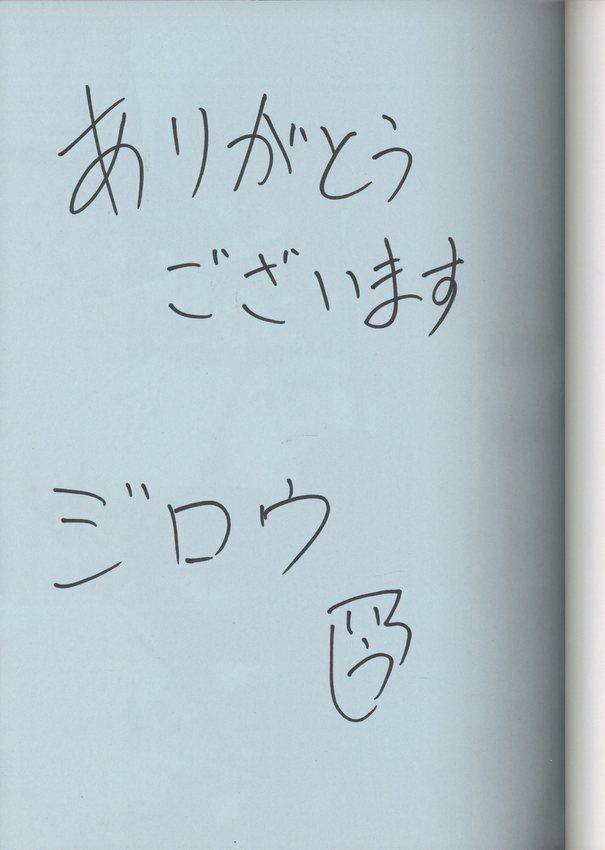 ありがとう
ございます
ジロウ